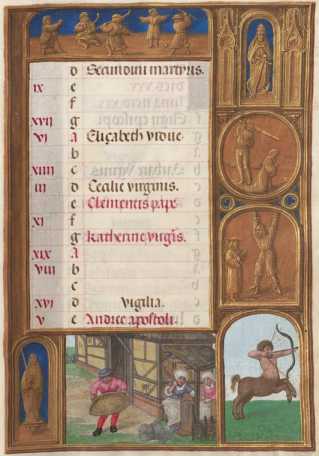 d Secundini martyris.
ix e
f
xvii g
vi a Elizabeth vidue.
b
xiiii c
iii d Cecilie virginis.
e Clementis pape
xi f
g Katherine virgis.
xix a
viii b
c
xvi d vigilia.
v e Andree apostoli.